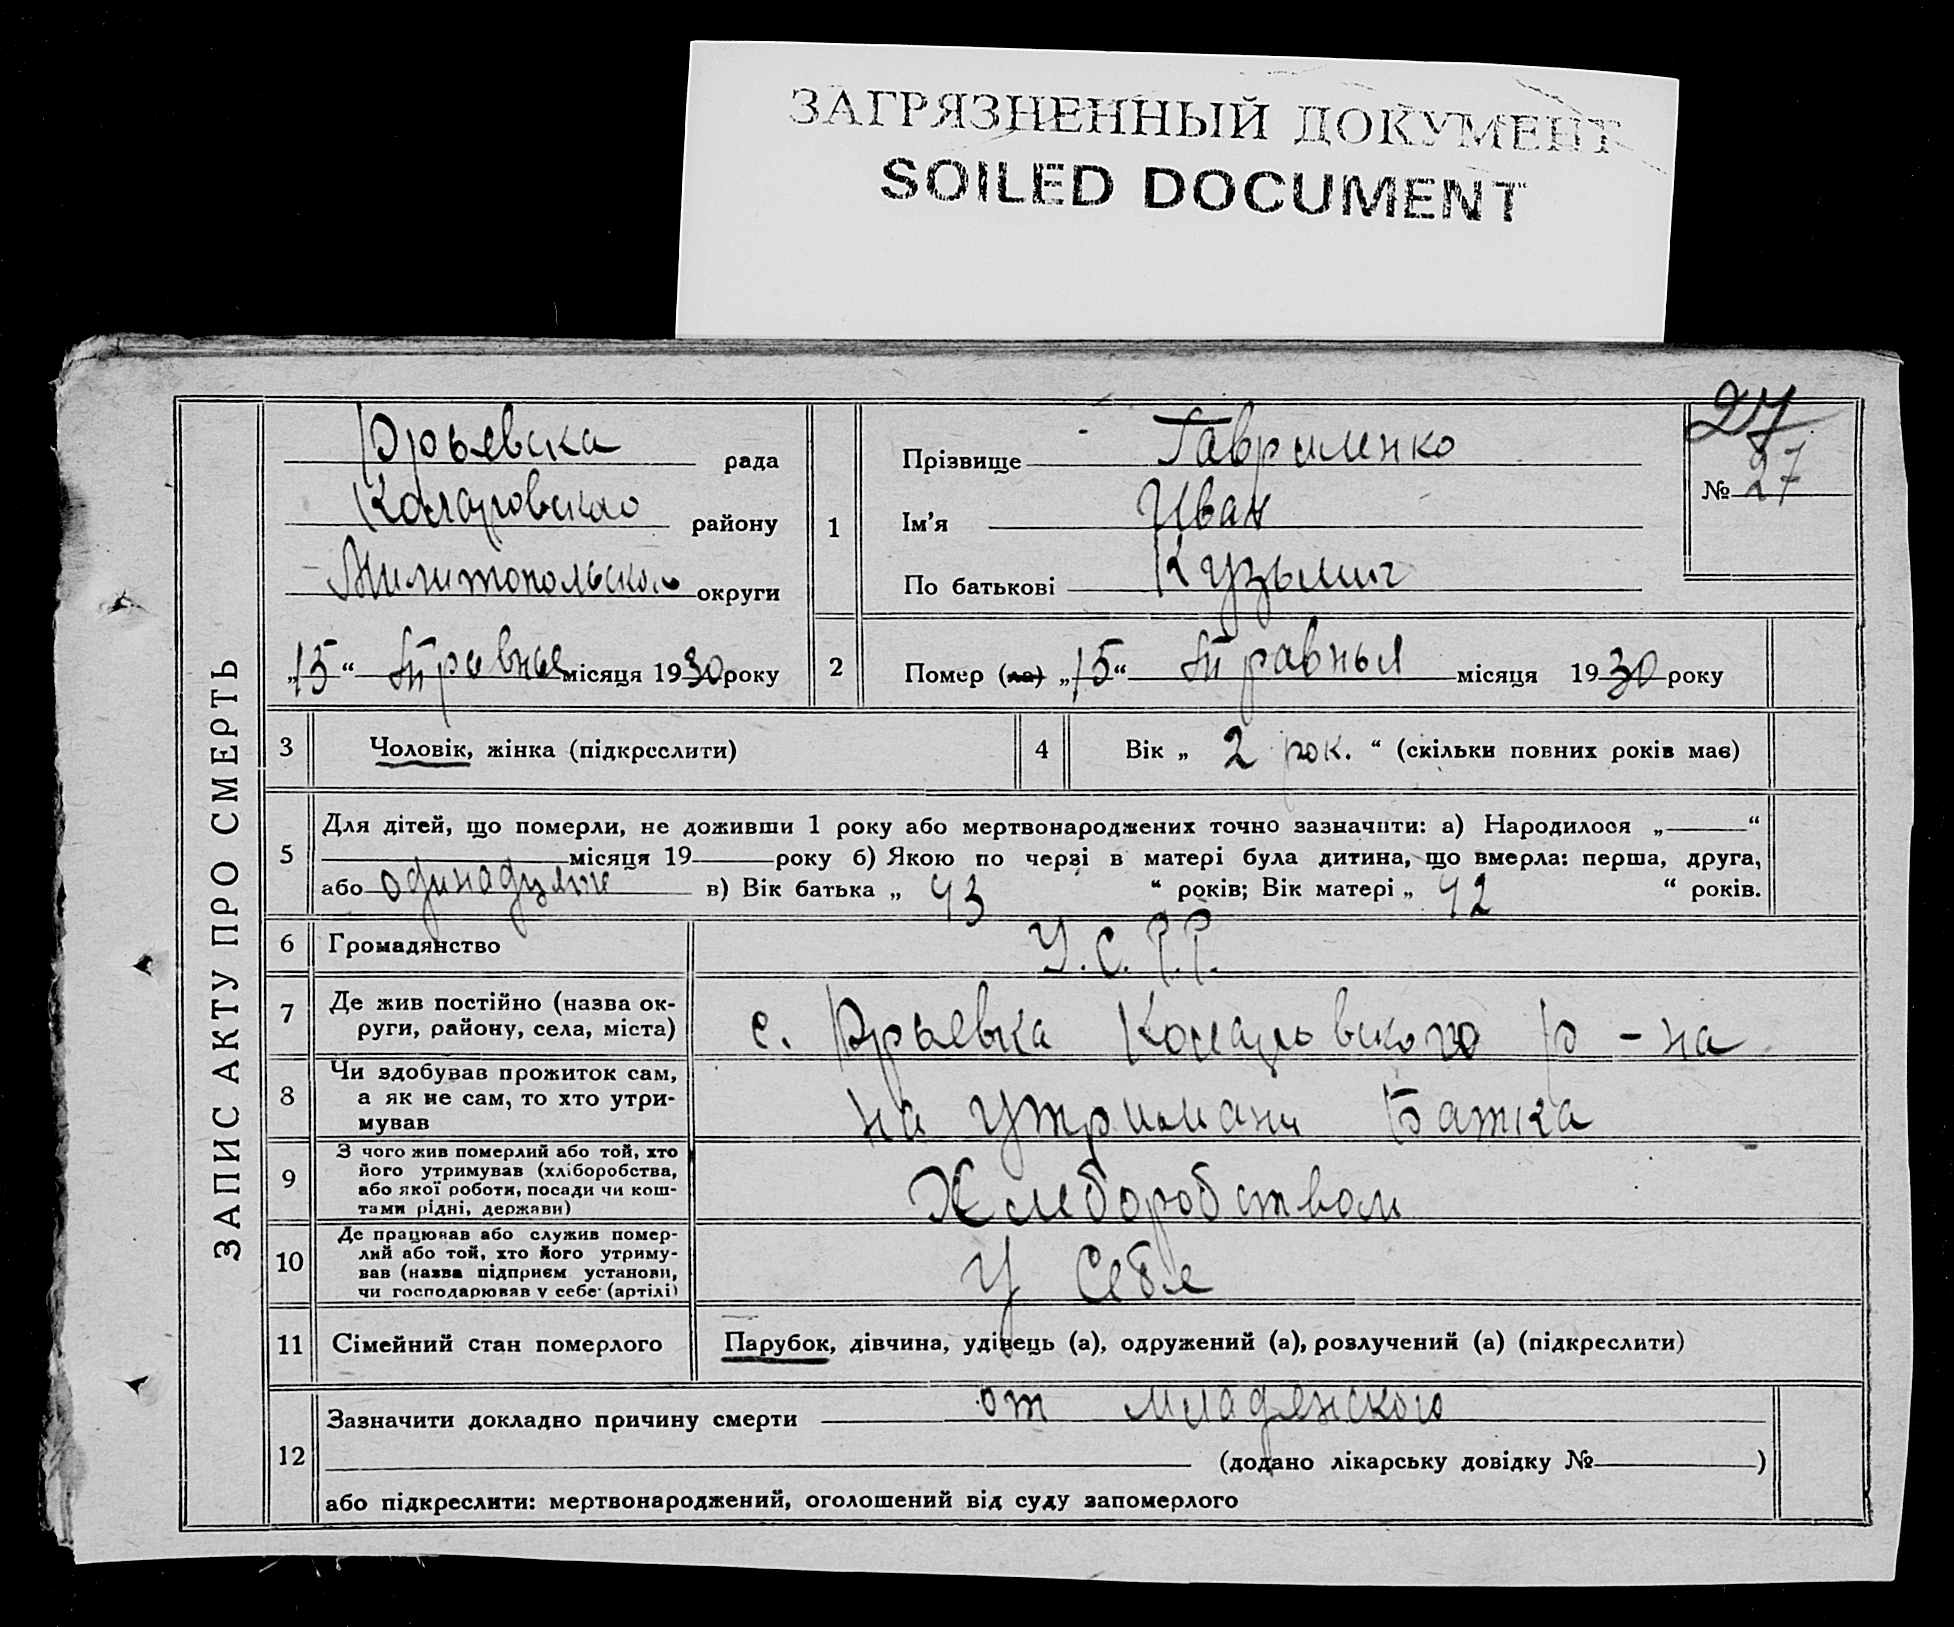 ЗАГРЯЗНЕННЫЙ ДОКУМЕНТ
SOILED DOCUMENT
ЗАПИС АКТУ ПРО СМЕРТЬ
Юрьевска рада
Коларовскаo району
Милитопольскаo округи
„15“ Травня місяця 1930 року
27
№ 27
1 Прізвище Гавриленко
Ім’я Иван
По батькові Кузьмич
2 Помер (ла) „15“ Травньля місяця 1930 року
3 Чоловік, жінка (підкреслити)
4 Вік „ 2 рок. “ (скільки повних років має)
5 Для дітей, що померли, не доживши 1 року або мертвонароджених точно зазначити: а) Народилося „ “
місяця 19 року б) Якою по черзі в матері була дитина, що вмерла: перша, друга,
або в) Вік батька „ 43 “ років; Вік матері „ 42 “ років.
6 Громадянство У.С.Р.Р.
7 Де жив постійно (назва ок-
руги, району, села, міста) с. Юрьевка Коларовского р-на
8 Чи здобував прожиток сам,
а як не сам, то хто утри-
мував на утримани Батка
9 З чого жив померлий або той, хто
його утримував (хліборобства,
або якої роботи, посади чи кош-
тами рідні, держави) Хлеборобством
10 Де працював або служив помер-
лий або той, хто його утриму-
вав (назва підприєм установи,
чи господарював у себе (артілі) У Себе
11 Сімейний стан померлого Парубок, дівчина, удівець (а), одружений (а), розлучений (а) (підкреслити)
12 Зазначити докладно причину смерти от младенского
(додано лікарську довідку № )
або підкреслити: мертвонароджений, оголошений від суду запомерлого